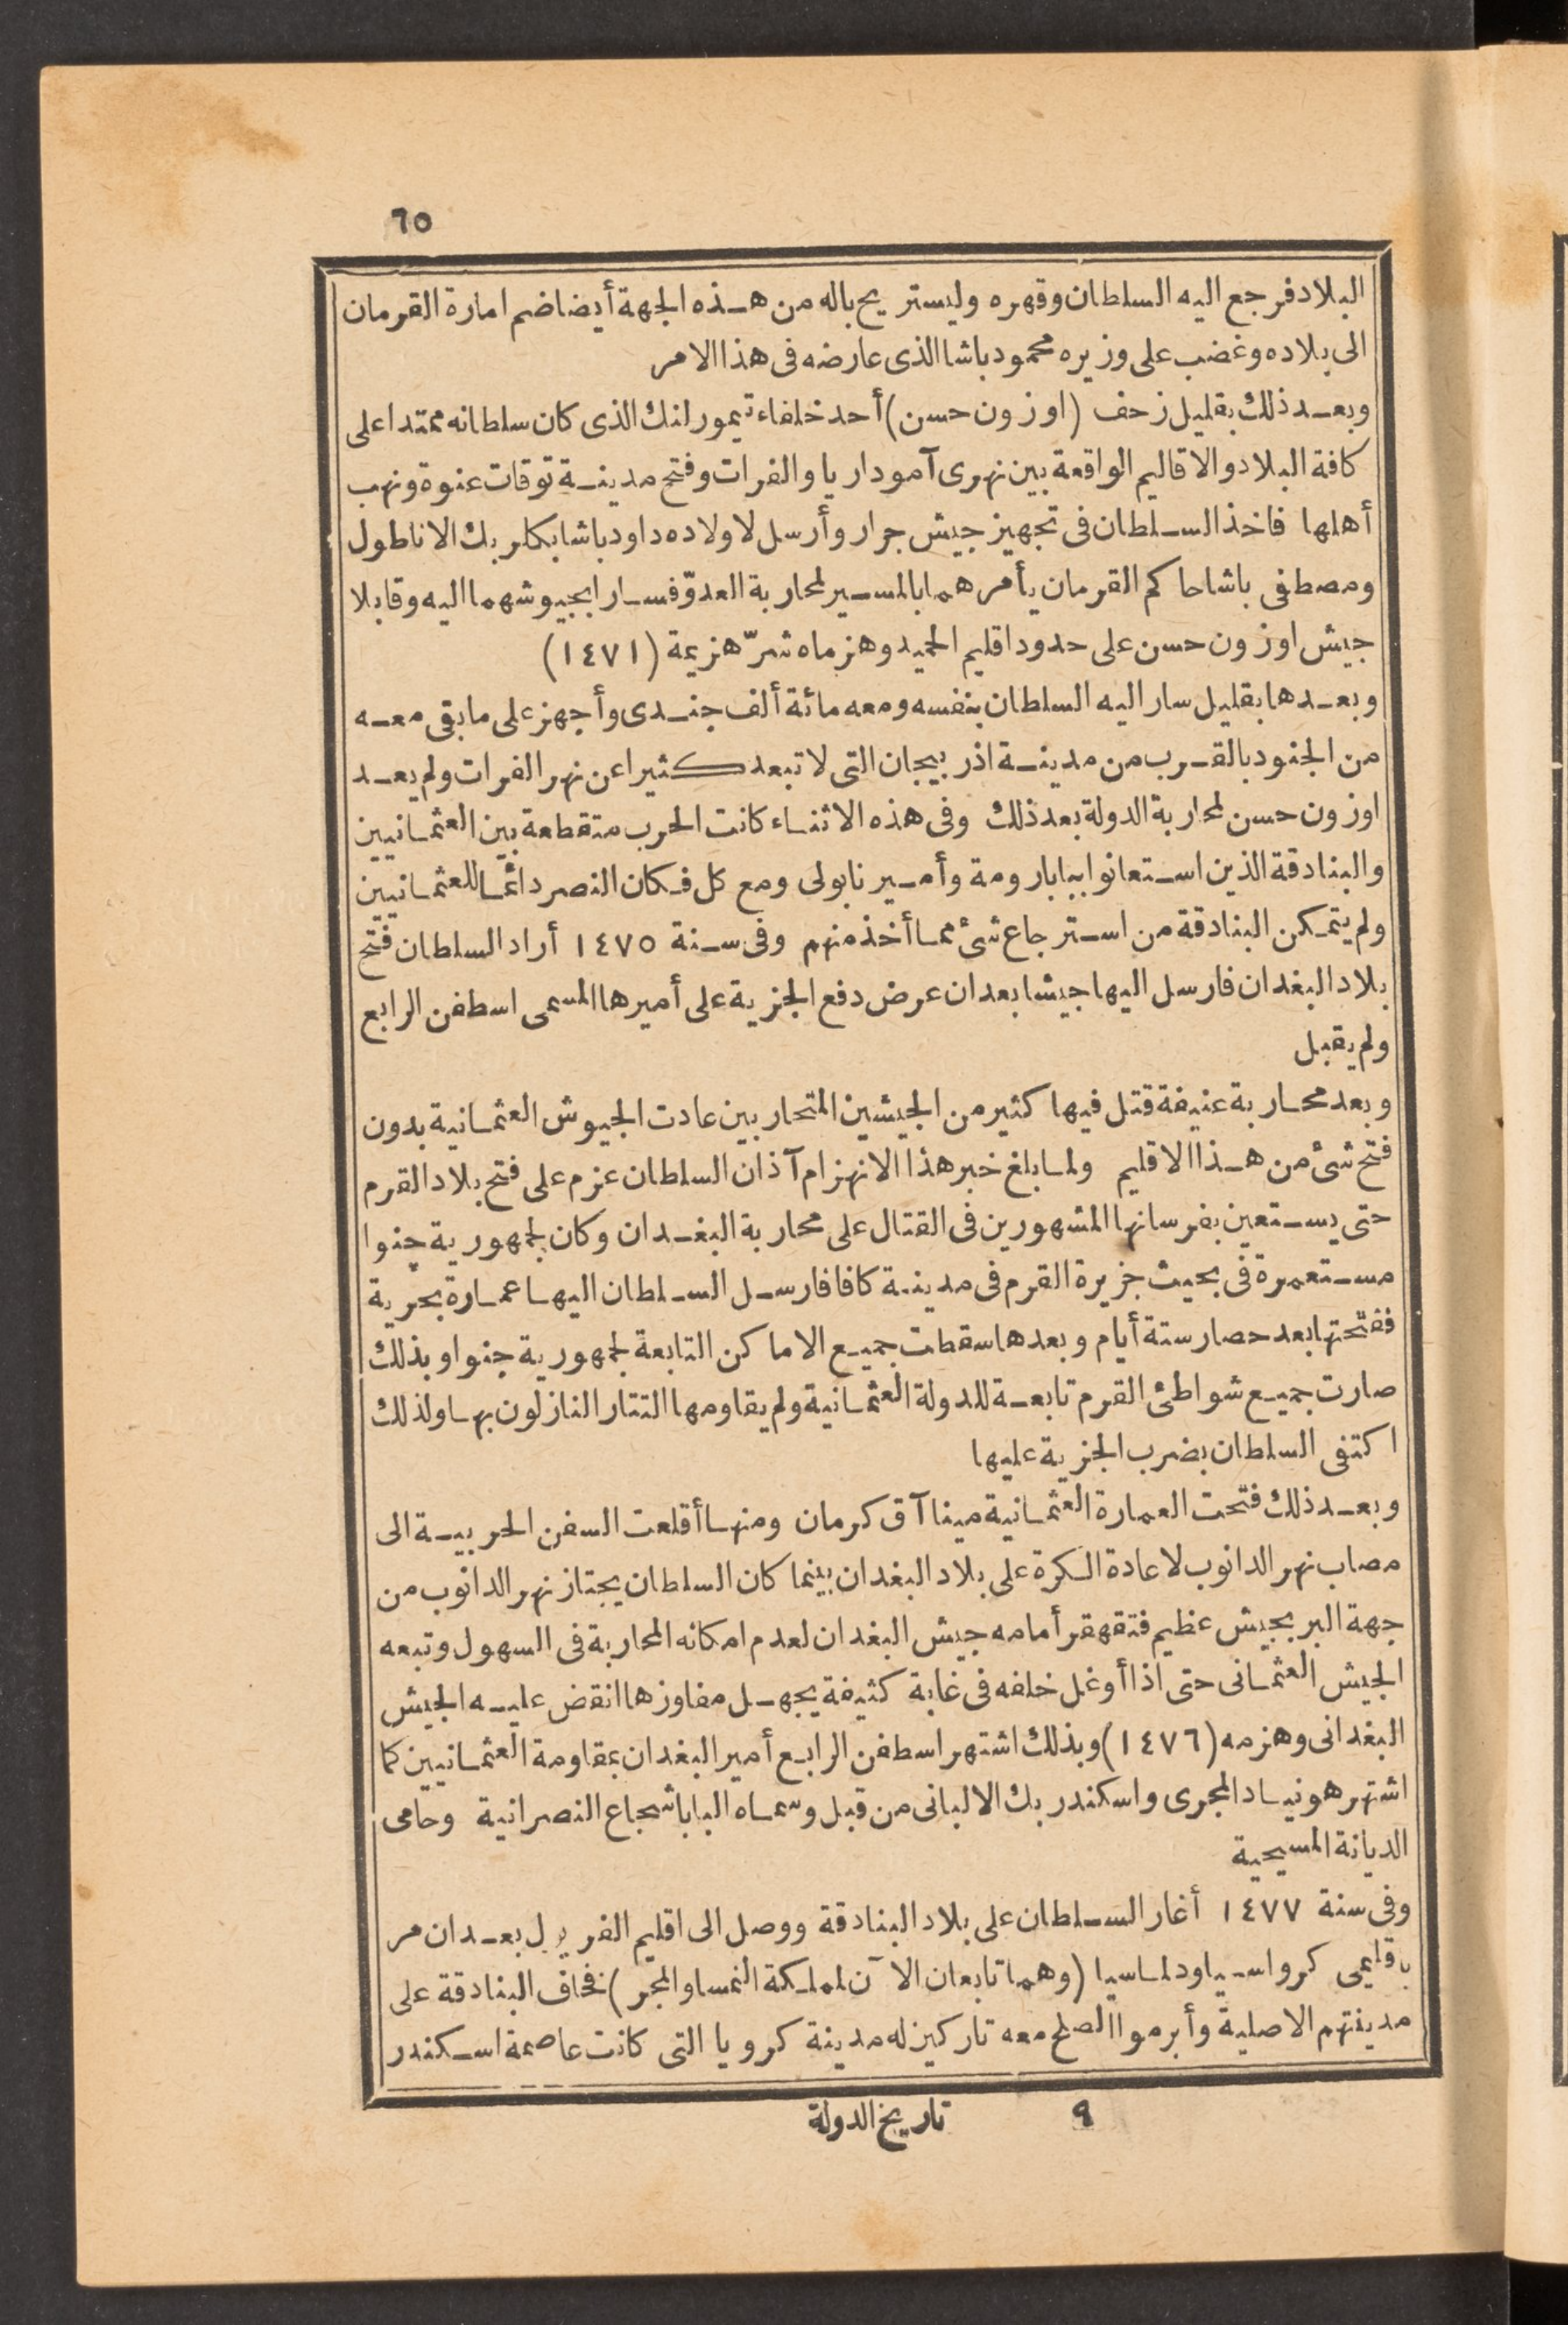 ٦٥
البلاد فرجع اليه السلطان وقهره وليستريح باله من هذه الجهة أيضا ضم امارة القرمان
الى بلاده وغضب على وزيره محمود باشا الذى عارضه فى هذا الامر
وبعد ذلك بقليل زحف (اوزون حسن) أحد خلفاء تيمورلنك الذى كان سلطانه ممتدا على
كافة البلاد والاقاليم الواقعة بين نهرى آموداريا والفرات وفتح مدينة توقات عنوة ونهب
أهلها فاخذ السلطان فى تجهيز جيش جرار وأرسل لاولاده داود باشا بكلربك الاناطول
ومصطفى باشا حاكم القرمان يأمرهما بالمسير لمحاربة العدوّ فسارا بجيوشهما اليه وقابلا
جيش اوزون حسن على حدود اقليم الحميد وهزماه شرّ هزيمة (١٤٧١)
وبعدها بقليل سار اليه السلطان بنفسه ومعه مائة ألف جندى وأجهز على ما بقى معه
من الجنود بالقرب من مدينة اذربيجان التى لا تبعد كثيرا عن نهر الفرات ولم يعد
اوزون حسن لمحاربة الدولة بعد ذلك وفى هذه الاثناء كانت الحرب متقطعة بين العثمانيين
والبنادقة الذين استعانوا ببابا رومة وأمير نابولى ومع كل فكان النصر دائما للعثمانيين
ولم يتمكن البنادقة من استرجاع شئ مما أخذ منهم وفى سنة ١٤٧٥ أراد السلطان فتح
بلاد البغدان فارسل اليها جيشا بعد ان عرض دفع الجزية على أميرها المسمى اسطفن الرابع
ولم يقبل
وبعد محاربة عنيفة قتل فيها كثير من الجيشين المتحاربين عادت الجيوش العثمانية بدون
فتح شئ من هذا الاقليم ولما بلغ خبر هذا الانهزام آذان السلطان عزم على فتح بلاد القرم
حتى يستعين بفرسانها المشهورين فى القتال على محاربة البغدان وكان لجمهورية جنوا
مستعمرة فى بحيث جزيرة القرم فى مدينة كافا فارسل السلطان اليها عمارة بحرية
ففتحتها بعد حصار ستة أيام وبعدها سقطت جميع الاماكن التابعة لجمهورية جنوا وبذلك
صارت جميع شواطئ القرم تابعة للدولة العثمانية ولم يقاومها التتار النازلون بها ولذلك
اكتفى السلطان بضرب الجزية عليها
وبعد ذلك فتحت العمارة العثمانية مينا آق كرمان ومنها أقلعت السفن الحربية الى
مصاب نهر الدانوب لاعادة الكرة على بلاد البغدان بينما كان السلطان يجتاز نهر الدانوب من
جهة البر بجيش عظيم فتقهقر أمامه جيش البغدان لعدم امكانه المحاربة فى السهول وتبعه
الجيش العثمانى حتى اذا أوغل خلفه فى غابة كثيفة يجهل مفاوزها انقض عليه الجيش
البغدانى وهزمه (١٤٧٦) وبذلك اشتهر اسطفن الرابع أمير البغدان بمقاومة العثمانيين كما
اشتهر هونياد المجرى واسكندر بك الالبانى من قبل وسماه البابا شجاع النصرانية وحامى
الديانة المسيحية
وفى سنة ١٤٧٧ أغار السلطان على بلاد البنادقة ووصل الى اقليم الفريول بعد ان مر
باقليمى كرواسيا ودلماسيا (وهما تابعان الآن لمملكة النمسا والمجر) فخاف البنادقة على
مدينتهم الاصلية وأبرموا الصلح معه تاركين له مدينة كرويا التى كانت عاصمة اسكندر
٩ تاريخ الدولة